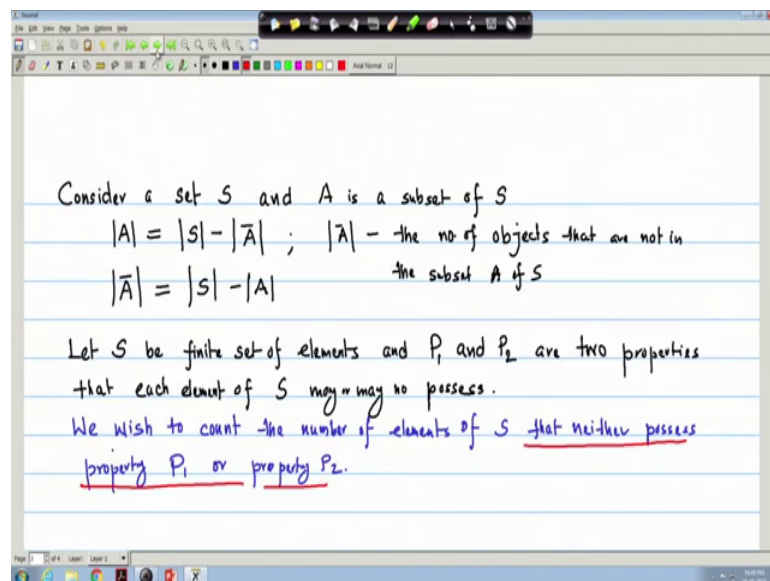 Journal
File Edit View Page Tools Options Help
Arial Normal 12
Consider a set S and A is a subset of S
|A| = |S| - |A̅| ; |A̅| - the no of objects that are not in
the subset A of S
|A̅| = |S| - |A|
Let S be finite set of elements and P₁ and P₂ are two properties
that each element of S may or may no possess.
We wish to count the number of elements of S that neither possess
property P₁ or property P₂.
Page 3 of 4 Layer: Layer 1